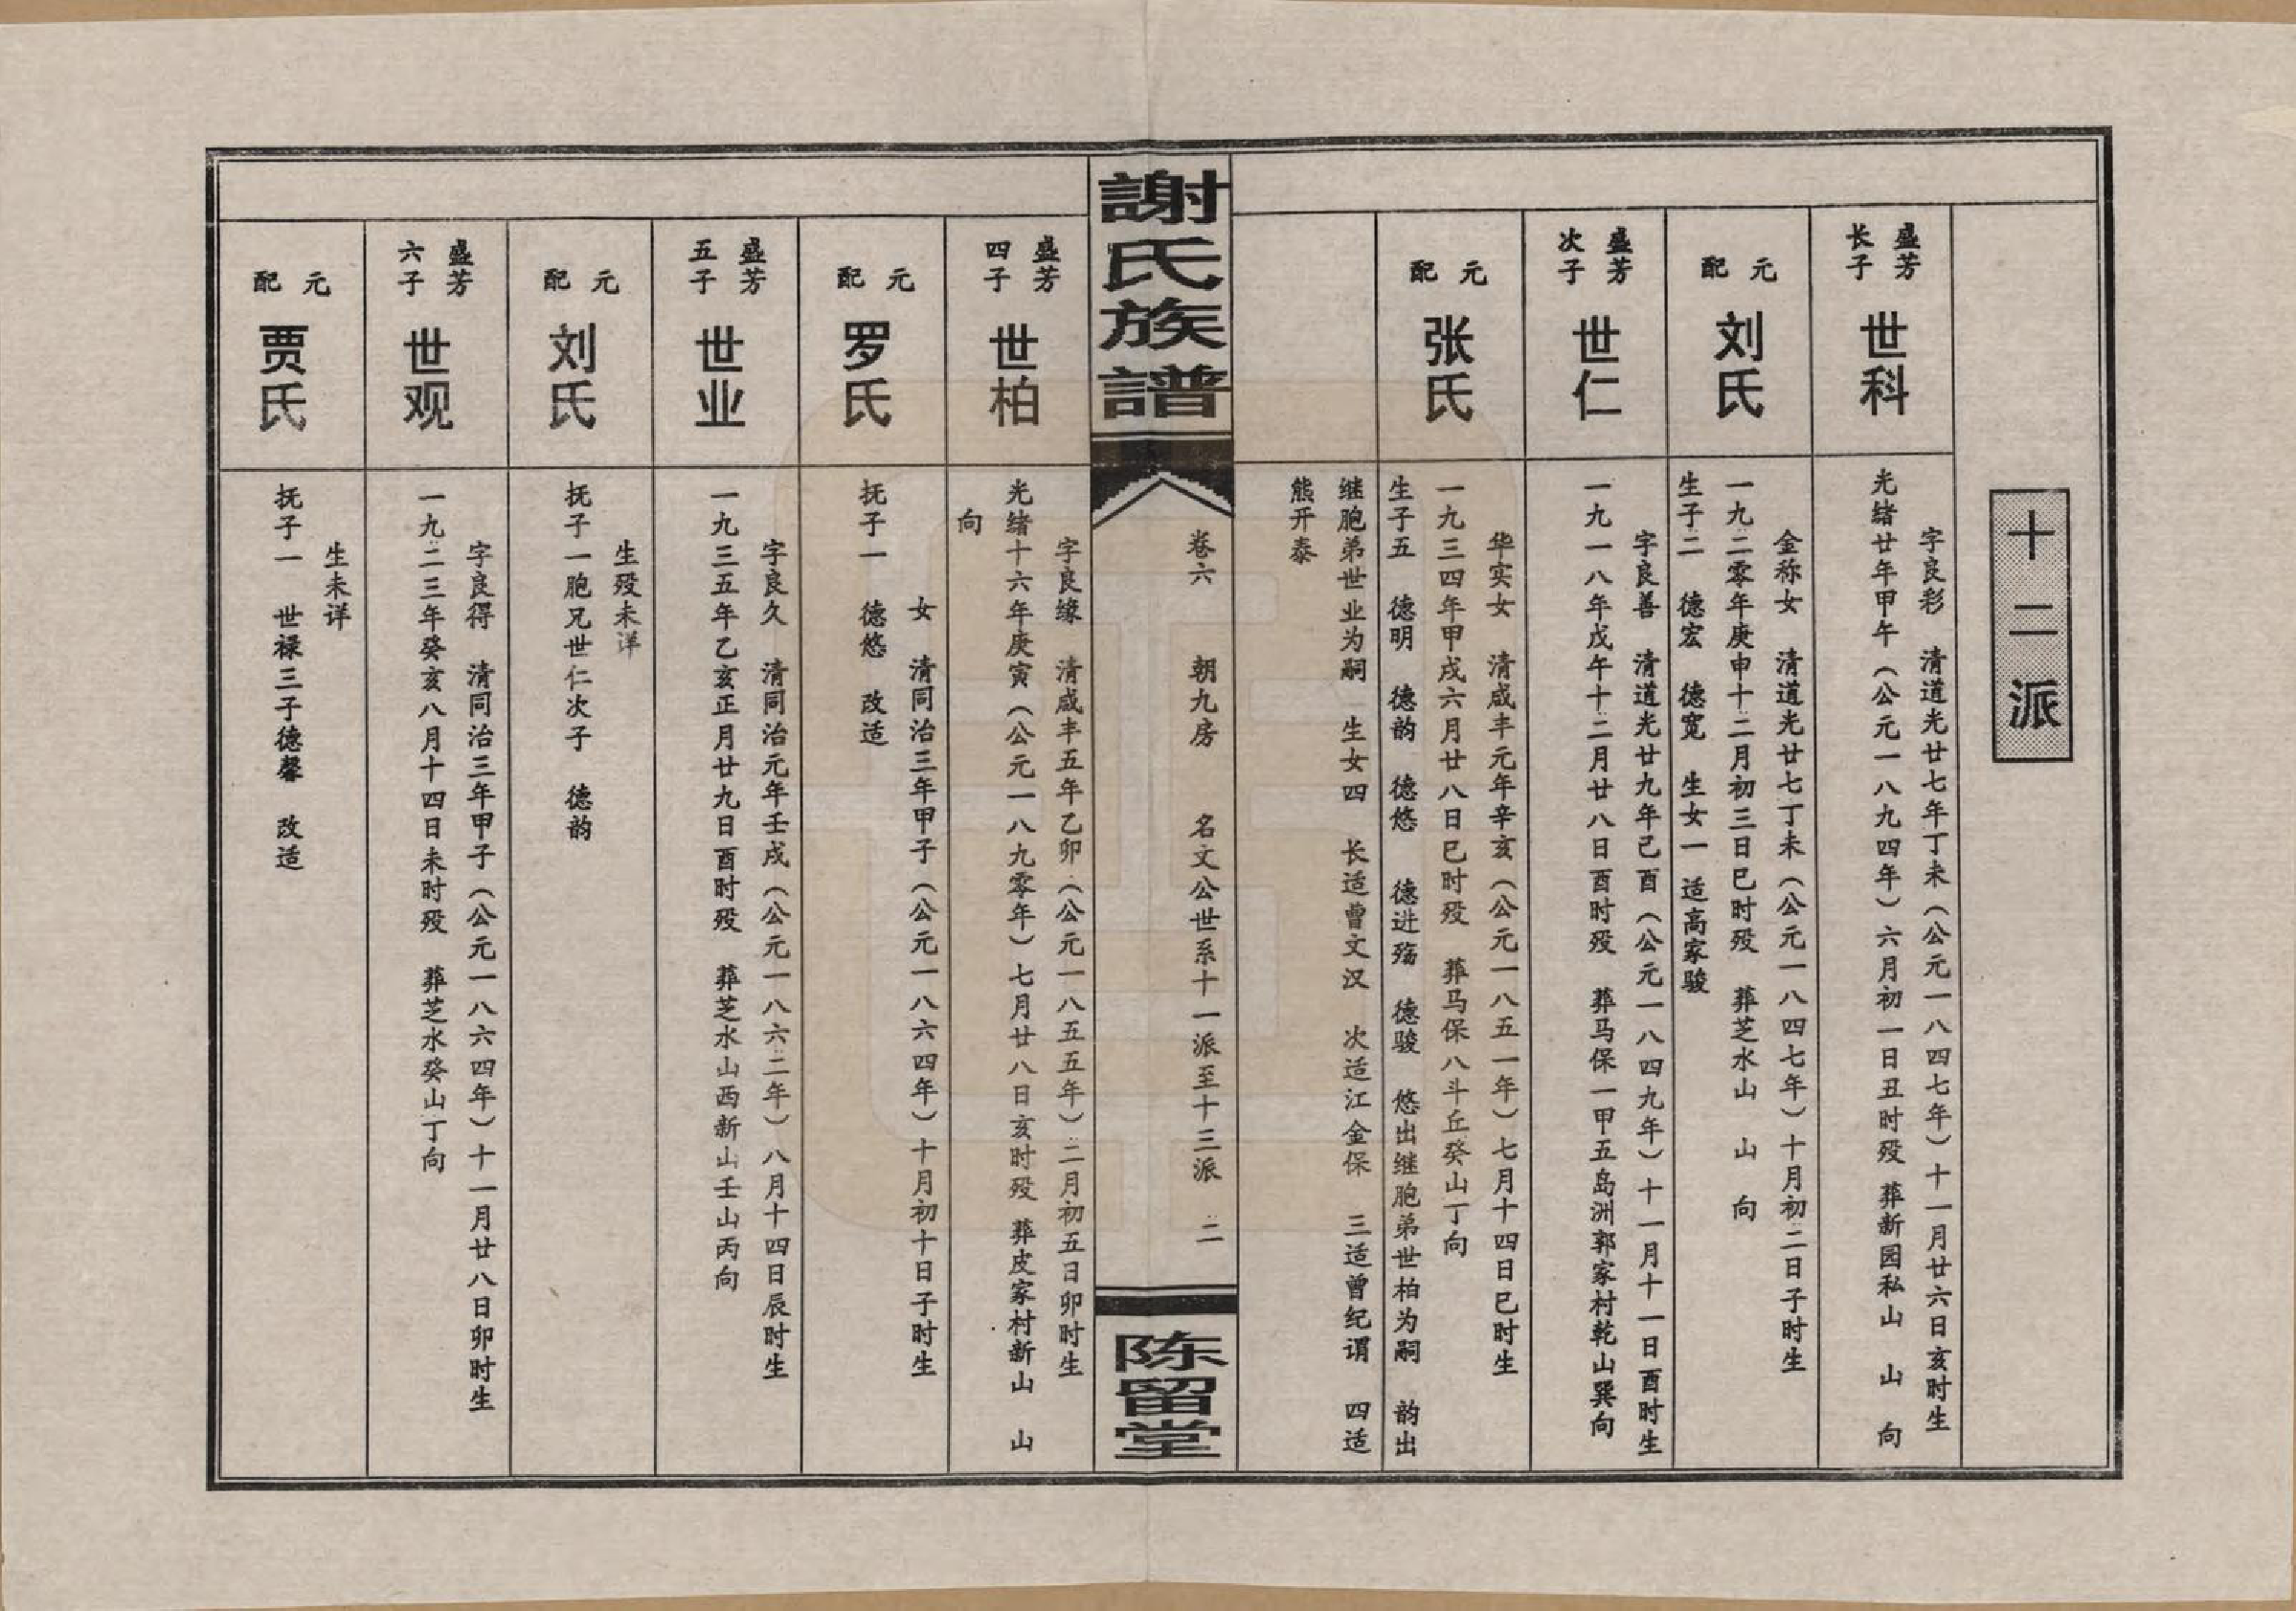 十二派
盛芳
长子
世科
字良彩　清道光廿七年丁未（公元一八四七年）十一月廿六日亥时生
光绪廿年甲午（公元一八九四年）六月初一日丑时殁　葬新园私山　山　向
元
配
刘氏
金称女　清道光廿七丁未（公元一八四七年）十月初二日子时生
一九二零年庚申十二月初三日巳时殁　葬芝水山　山　向
生子二　德宏　德宽　生女一　适高家骏
盛芳
次子
世仁
字良善　清道光廿九年己酉（公元一八四九年）十一月十一日酉时生
一九一八年戊午十二月廿八日酉时殁　葬马保一甲五岛洲郭家村乾山巽向
元
配
张氏
华实女　清咸丰元年辛亥（公元一八五一年）七月十四日巳时生
一九三四年甲戌六月廿八日巳时殁　葬马保八斗丘癸山丁向
生子五　德明　德韵　德悠　德进殇　德骏　悠出继胞弟世柏为嗣　韵出
继胞弟世业为嗣　生女四　长适曹文汉　次适江金保　三适曾纪谓　四适
熊开泰
謝氏族譜
卷六　朝九房　名文公世系十一派至十三派　二
陈留堂
盛芳
四子
世柏
字良缘　清咸丰五年乙卯（公元一八五五年）二月初五日卯时生
光绪十六年庚寅（公元一八九零年）七月廿八日亥时殁　葬皮家村新山　山
向
元
配
罗氏
女　清同治三年甲子（公元一八六四年）十月初十日子时生
抚子一　德悠　改适
盛芳
五子
世业
字良久　清同治元年壬戌（公元一八六二年）八月十四日辰时生
一九三五年乙亥正月廿九日酉时殁　葬芝水山西新山壬山丙向
元
配
刘氏
生殁未详
抚子一胞兄世仁次子　德韵
盛芳
六子
世观
字良得　清同治三年甲子（公元一八六四年）十一月廿八日卯时生
一九二三年癸亥八月十四日未时殁　葬芝水癸山丁向
元
配
贾氏
生未详
抚子一　世禄三子德馨　改适